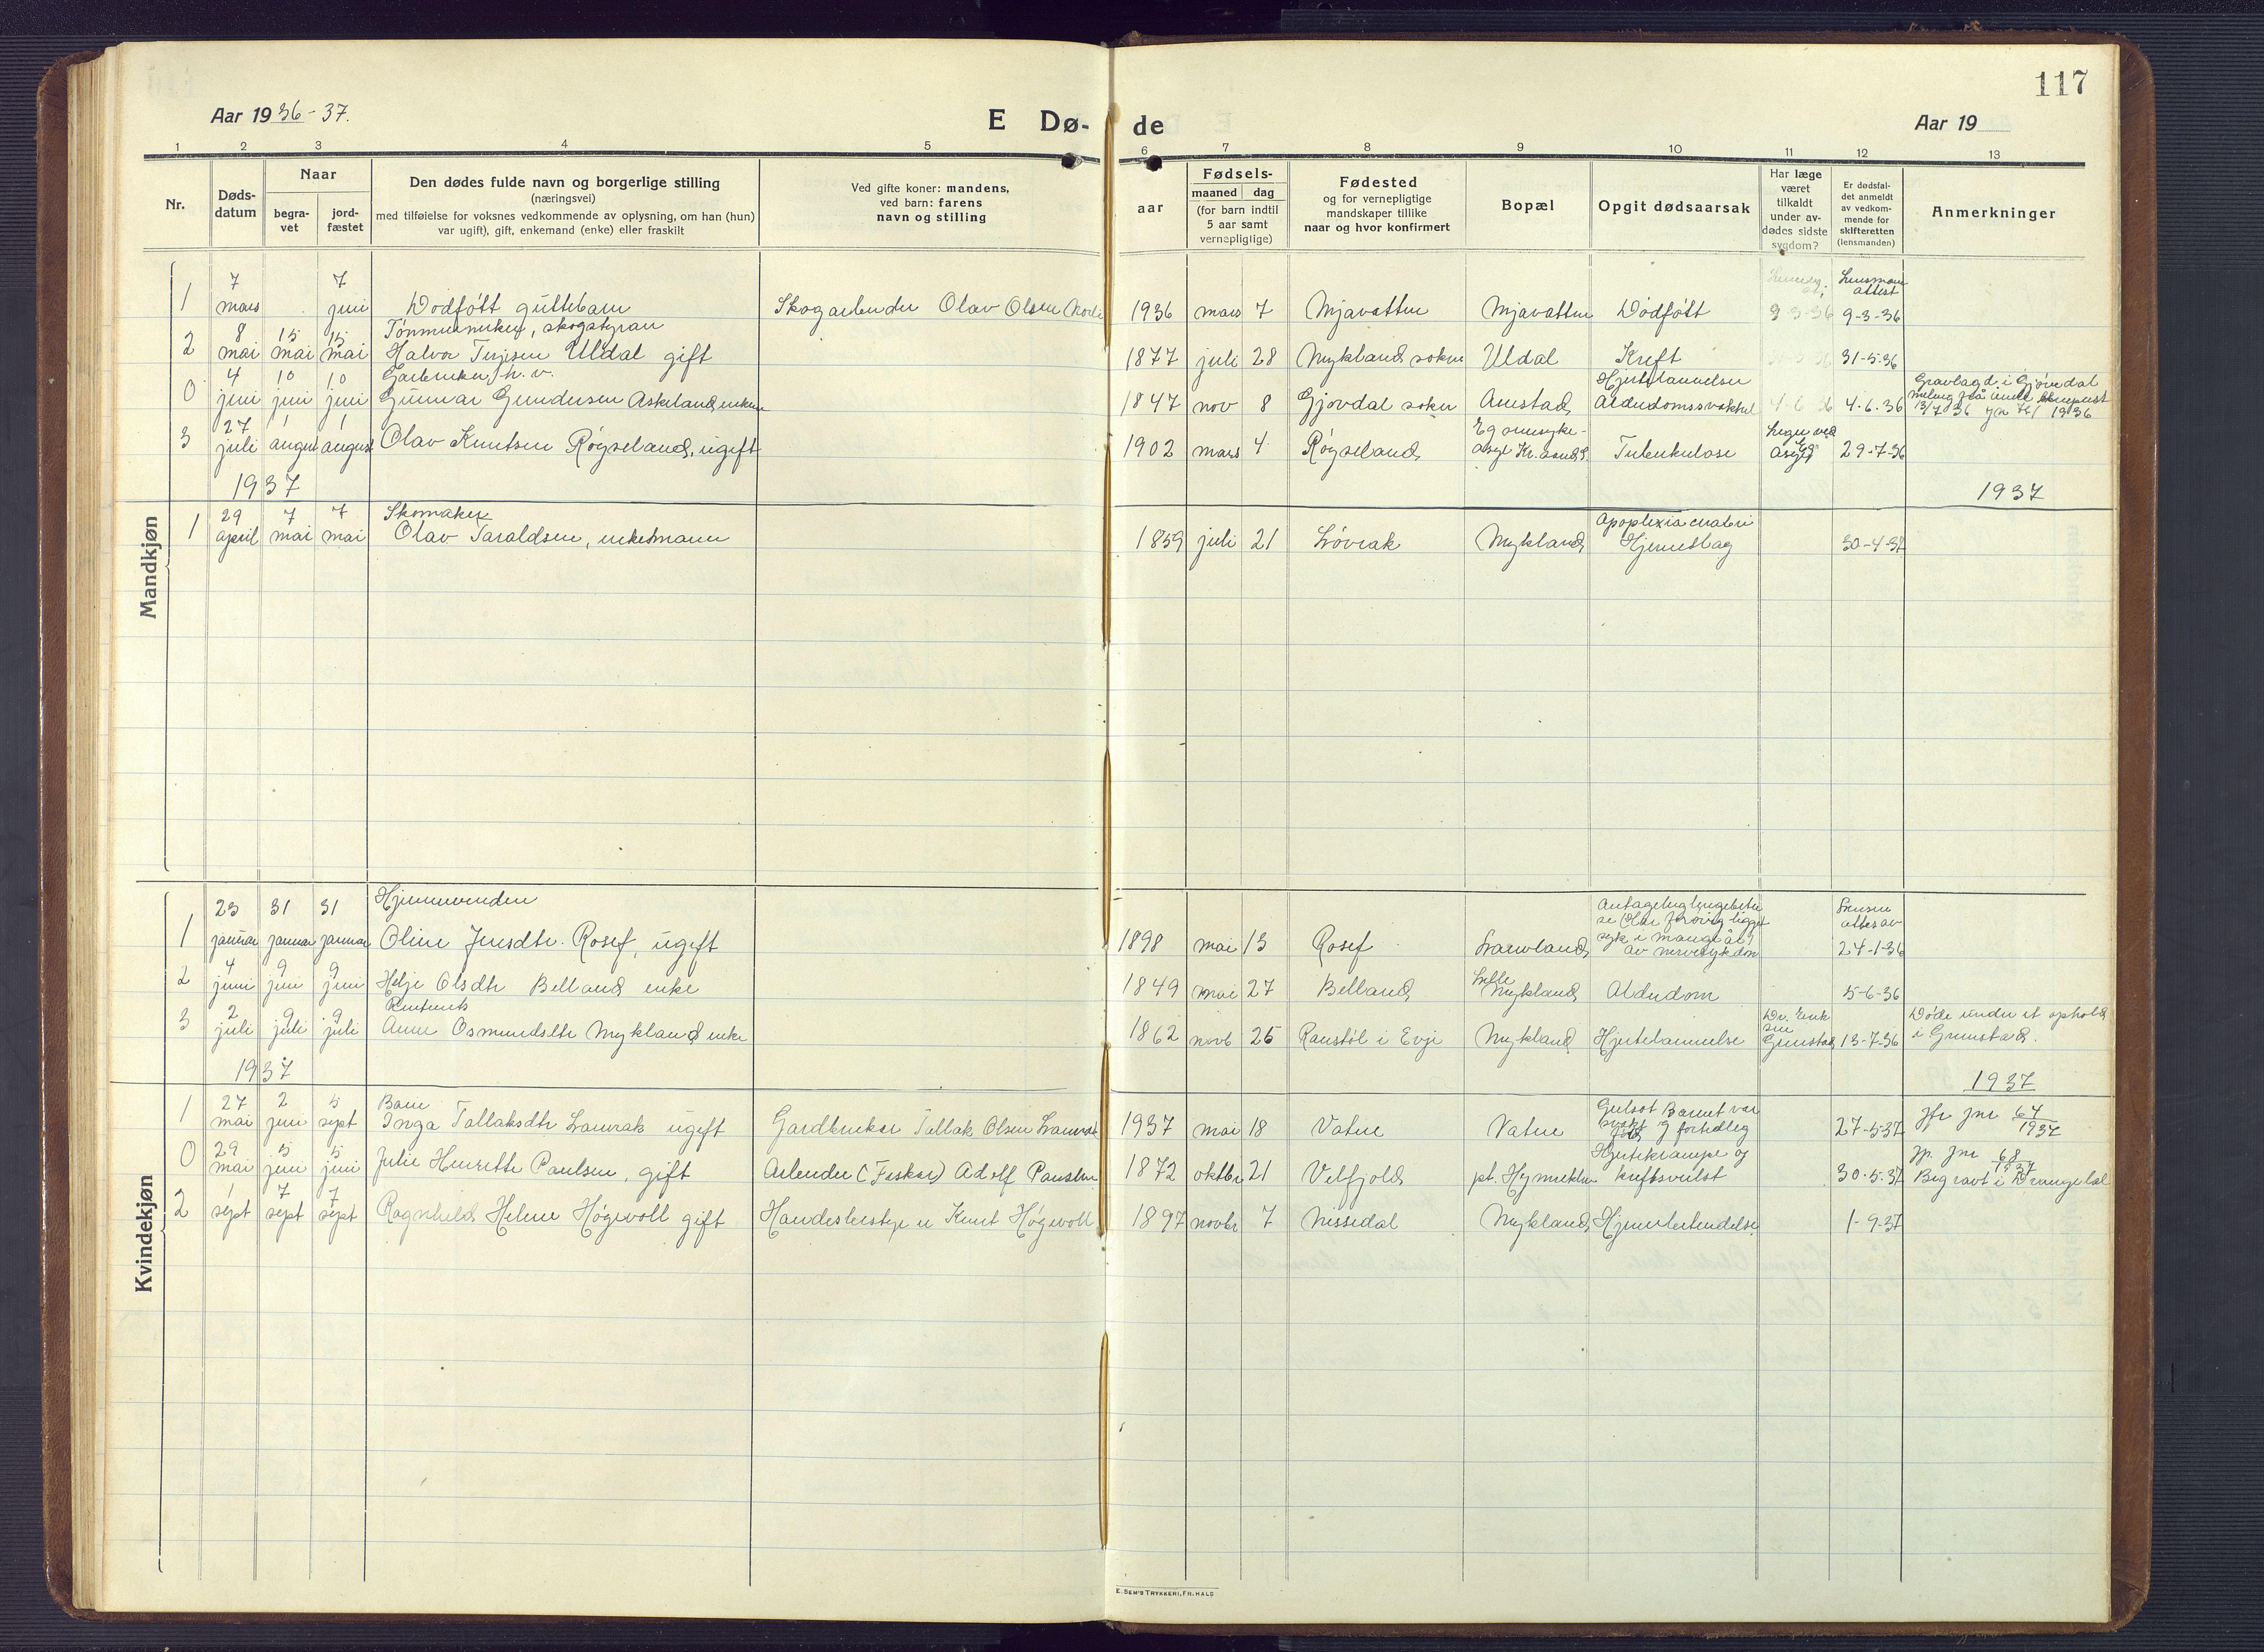 117
Aar 1936-37.
E Dø-
de
Aar 19
1 2 3 4 5 6 7 8 9 10 11 12 13
Nr.
Døds-
datum
Naar
begra-
vet
jord-
fæstet
Den dødes fulde navn og borgerlige stilling
(næringsvei)
med tilføielse for voksnes vedkommende av oplysning, om han (hun)
var ugift), gift, enkemand (enke) eller fraskilt
Ved gifte koner: mandens,
ved barn: farens
navn og stilling
aar
Fødsels-
maaned dag
(for barn indtil
5 aar samt
vernepligtige)
Fødested
og for vernepligtige
mandskaper tillike
naar og hvor konfirmert
Bopæl
Opgit dødsaarsak
Har læge
været
tilkaldt
under av-
dødes sidste
sygdom?
Er dødsfal-
det anmeldt
av vedkom-
mende for
skifteretten
(lensmanden)
Anmerkninger
Mandkjøn
1 7 mars 7 juni Dødfött guttebarn Skogarbeider Olav Olsen 1936 mars 7 Mjavatten Mjavatten Dødfött 9-3-36 Lensmann attest 9-3-36
Tönmermerker, skogstyrar
2 8 mai 15 mai 15 mai Halvor Terjesen Uldal gift 1877 juli 28 Mykland sokn Uldal Kreft 31-5-36
Garbruker, h. v.
0 4 juni 10 juni 10 juni Gunnar Gundersen Askeland, enkem 1847 nov 8 Gjövdal sokn Aanestad Hjertelammelse Alderdomssvakhet 4-6-36 4-6-36 Gravlagd i Gjövdal
13/7 36 1936
3 27 juli 1 august 1 august Olav Knutsen Röyseland, ugift 1902 mars 4 Röyseland Eg sinnsyke-
asyl Kr.sand S. Tuberkulose Legen ved Eg Asyl 29-7-36
1937
1937
Skomaker
1 29 april 7 mai 7 mai Olav Taraldsen, enkemann 1859 juli 21 Lövrak Mykland Apoplexia cerebri
Hjerneslag 30-4-37
Kvindekjøn
Hjemmeværende
1 23 januar 31 januar 31 januar Oline Jensdtr. Rosef, ugift 1898 mai 13 Rosef Lauvland Antagelig lungebete-
se (Har forövrig ligget
syk i mange år)
av nervesykdom Lensm
attest av
24-1-36
2 4 juni 9 juni 9 juni Helje Olsdtr Belland enke 1849 mai 27 Belland Mykland Alderdom 5-6-36
3 2 juli 9 juli 9 juli Anne Osmundsdtr Mykland enke 1862 novb 25 Raustöl i Evje Mykland Hjertelammelse Dr. Erik
sen
Grimstad 13-7-36 Döde under et ophold
i Grimstad.
1937
1937
Barn
1 27 mai 2 juni 5 sept Inga Tallaksdtr Lauvrak ugift Gardbruker Tallak Olsen Lauvrak 1937 mai 18 Vatne Vatne Gulsot Barnet var
svakt født 27-5-37 Jfr jnr 64/1937
0 29 mai 5 juni 5 juni Julie Henrette Paulsen, gift Arbeider (Fisker) Adolf Paulsen 1872 oktbr 21 Velfjord pt. Hynnekleiv Hjertekrampe og
kreftsvulst 30-5-37 Jfr. jnr 68/1937
Begravt i Drangedal
2 1 sept 7 sept 7 sept Ragnhild Helene Högevoll gift Handelsbestyrer Knut Högevoll 1897 novbr 7 Nissedal Mykland Hjernebetendelse 1-9-37
E. SEM'S TRYKKERI, FR.HALD